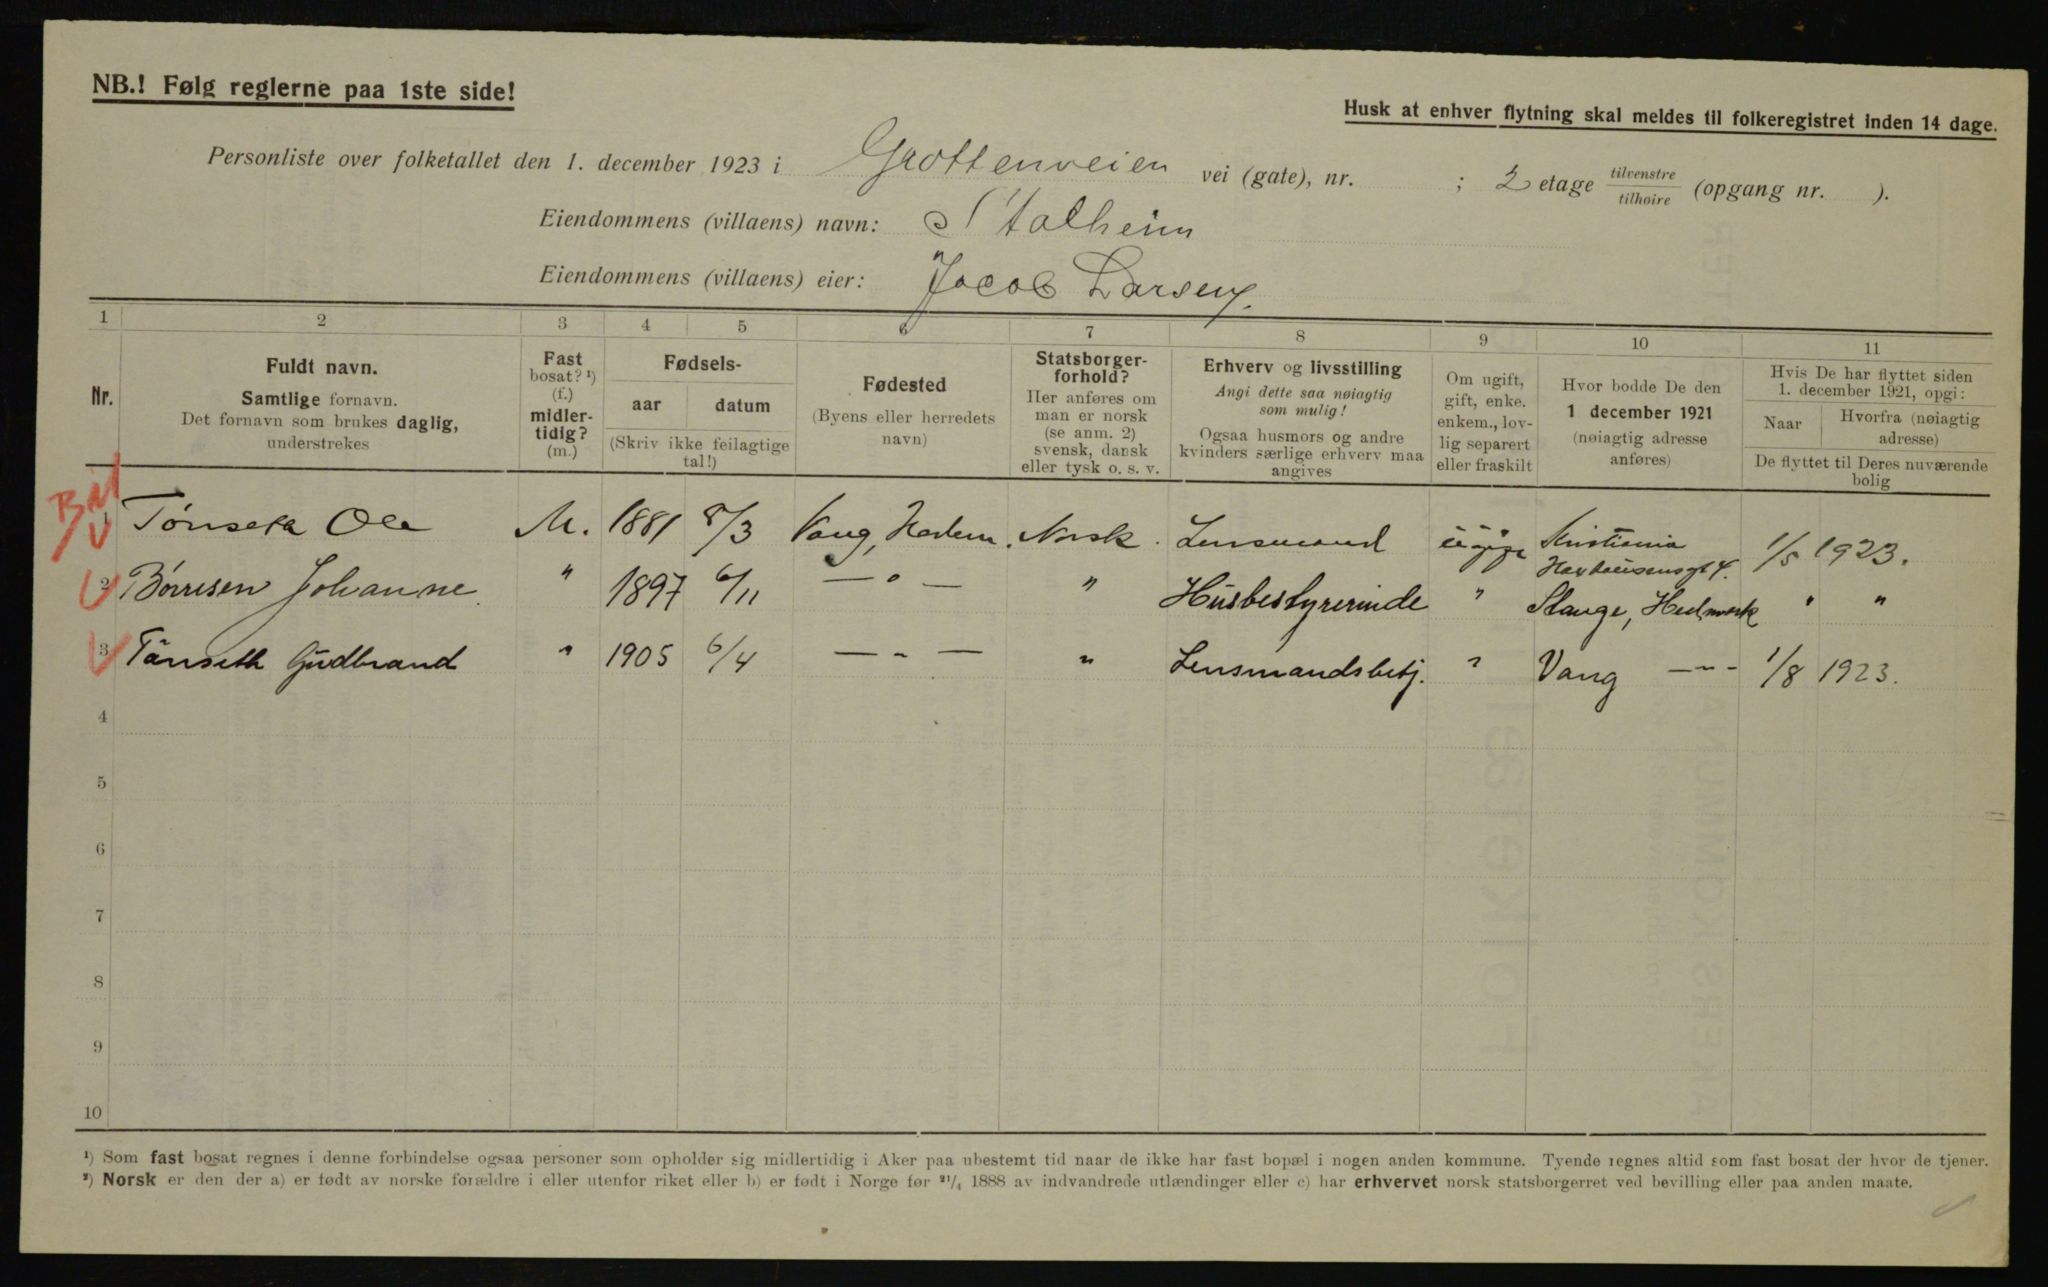 NB.! Følg reglerne paa 1ste side!
Husk at enhver flytning skal meldes til folkeregistret inden 14 dage.
Personliste over folketallet den 1. december 1923 i Grottenveien vei (gate), nr. ; 2 etage tilvenstre tilhøire (opgang nr. ).
Eiendommens (villaens) navn: Stalheim
Eiendommens (villaens) eier: Jacob Larsen.
1 2 3 4 5 6 7 8 9 10 11
Nr.
Fuldt navn.
Samtlige fornavn.
Det fornavn som brukes daglig,
understrekes
Fast
bosat? ¹)
(f.)
midler-
tidig?
(m.)
Fødsels-
aar datum
(Skriv ikke feilagtige
tal!)
Fødested
(Byens eller herredets
navn)
Statsborger-
forhold?
Her anføres om
man er norsk
(se anm. 2)
svensk, dansk
eller tysk o. s. v.
Erhverv og livsstilling
Angi dette saa nøiagtig
som mulig!
Ogsaa husmors og andre
kvinders særlige erhverv maa
angives
Om ugift,
gift, enke.
enkem., lov-
lig separert
eller fraskilt
Hvor bodde De den
1 december 1921
(nøiagtig adresse
anføres)
Hvis De har flyttet siden
1. december 1921, opgi:
Naar Hvorfra (nøiagtig
adresse)
De flyttet til Deres nuværende
bolig
1 Tønseth Ole M. 1881 8/3 Vang, Hedem. Norsk. Lensmand ugift Kristiania 1/5 1923.
2 Børresen Johanne. " 1897 6/11 — " — " Husbestyrerinde " Stange, Hedmark " "
3 Tønseth Gudbrand " 1905 6/4 — " — " Lensmandsbetj. " Vang — " — 1/8 1923.
4
5
6
7
8
9
10
¹) Som fast bosat regnes i denne forbindelse ogsaa personer som opholder sig midlertidig i Aker paa ubestemt tid naar de ikke har fast bopæl i nogen anden kommune. Tyende regnes altid som fast bosat der hvor de tjener.
²) Norsk er den der a) er født av norske forældre i eller utenfor riket eller b) er født i Norge før ²¹/₄ 1888 av indvandrede utlændinger eller c) har erhvervet norsk statsborgerret ved bevilling eller paa anden maate.